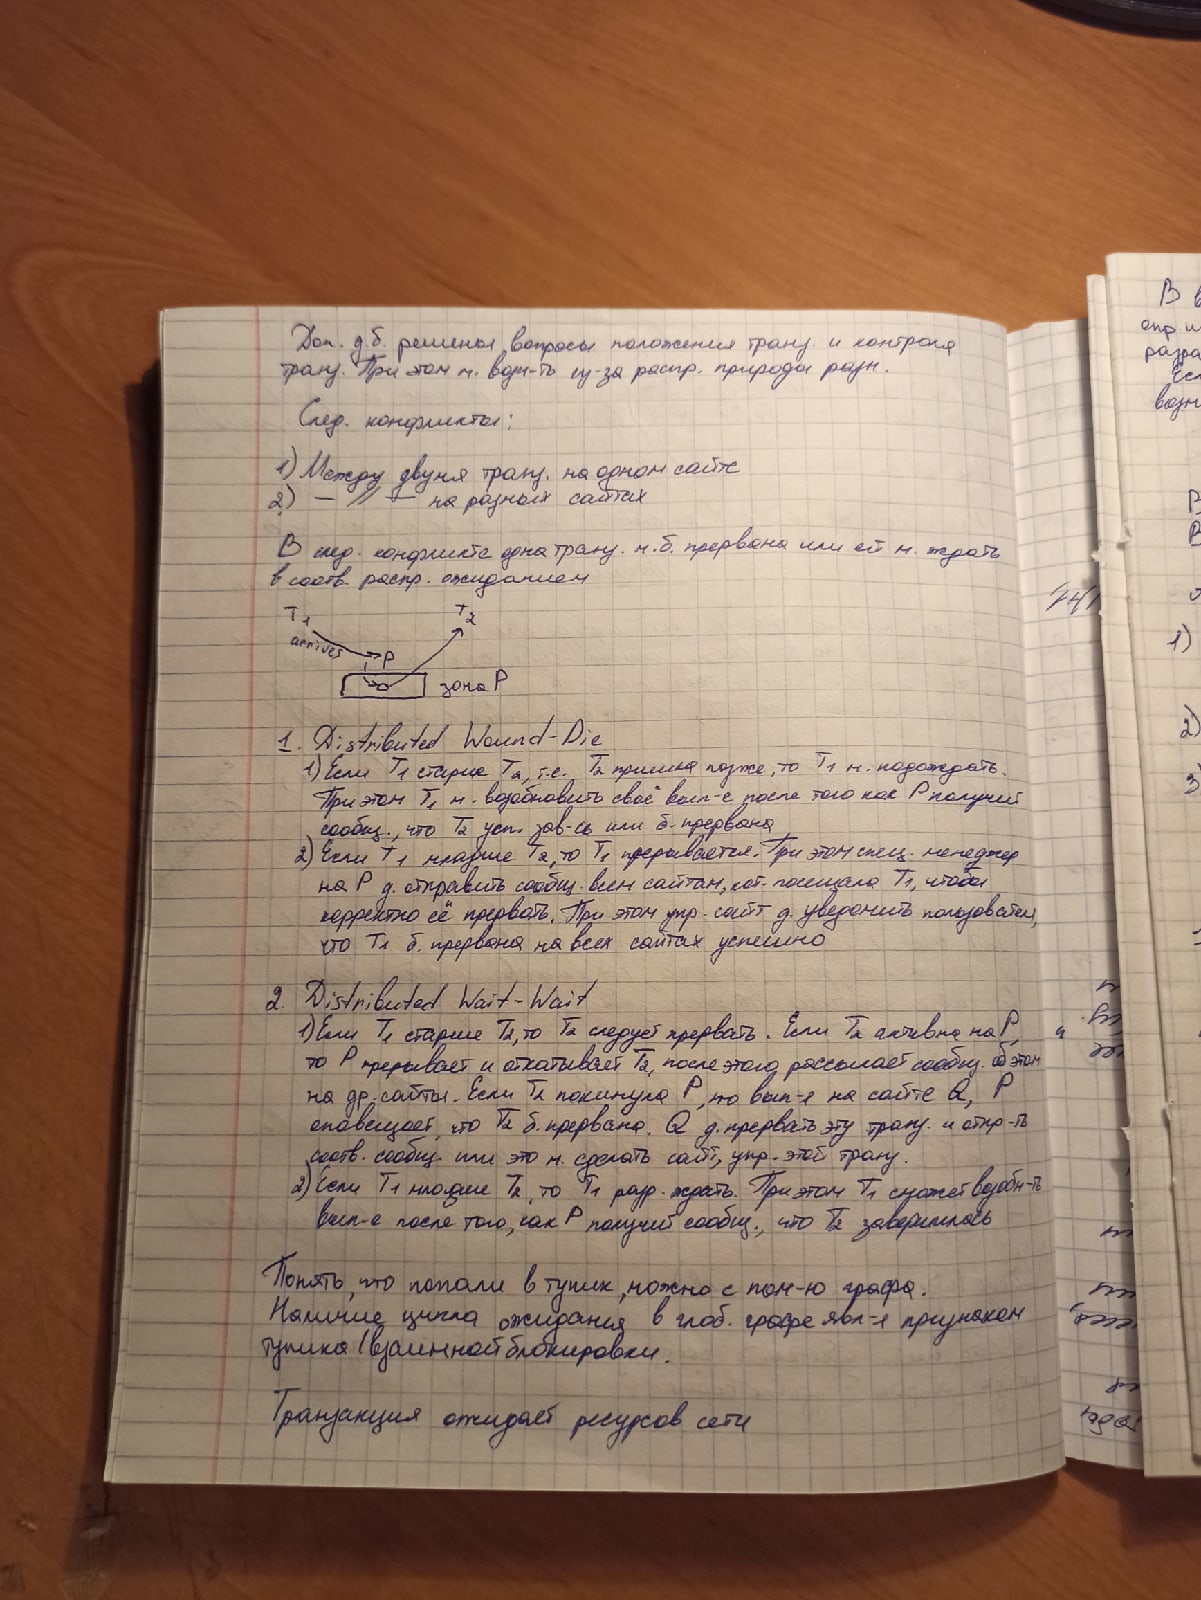 Доп. д.б. решены вопросы положения транз. и контроля
транз. При этом м. возн-ть из-за распр. природы разн.
След. конфликты:
1) Между двумя транз. на одном сайте
2) — // — на разных сайтах
В след. конфликте одна транз. м.б. прервана или ей м. ждать
в соотв. распр. ожиданием
T1 T2
arrives P
зона P
1. Distributed Wound-Die
1) Если T1 старше T2, т.е. T2 пришла позже, то T1 м. подождать.
При этом T1 м. возобновить своё вып-е после того как P получит
сообщ., что T2 усп. зав-сь или б. прервана
2) Если T1 младше T2, то T1 прерывается. При этом спец. менеджер
на P д. отправить сообщ. всем сайтам, кот. посещала T1, чтобы
корректно её прервать. При этом упр. сайт д. уведомить пользователя,
что T1 б. прервана на всех сайтах успешно
2. Distributed Wait-Wait
1) Если T1 старше T2, то T2 следует прервать. Если T2 активна на P,
то P прерывает и откатывает T2, после этого рассылает сообщ. об этом
на др. сайты. Если T2 покинула P, но вып-я на сайте Q, P
оповещает, что T2 б. прервана. Q д. прервать эту транз. и отпр-ть
соотв. сообщ. или это м. сделать сайт, упр. этой транз.
2) Если T1 младше T2, то T1 разр. ждать. При этом T1 сможет возобн-ть
вып-е после того, как P получит сообщ., что T2 завершилась
Понять, что попали в тупик, можно с пом-ю графа.
Наличие цикла ожидания в глоб. графе явл-я признаком
тупика (взаимной блокировки.
Транзакция ожидает ресурсов сети
В
разра
1)
2)
3)